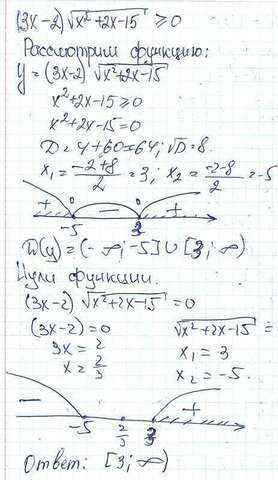 (3x-2)√(x²+2x-15) ≥ 0
Рассмотрим функцию:
y=(3x-2) √(x²+2x-15)
x²+2x-15≥0
x²+2x-15=0
D=4+60=64; √D=8.
x₁=(-2+8)/2=3; x₂=(-2-8)/2=-5
+ - +
-5 3
D(y)=(-∞;-5]∪[3;∞)
Нули функции.
(3x-2) √(x²+2x-15)=0
(3x-2)=0 √(x²+2x-15)=
3x=2 x₁=3
x=2/3 x₂=-5.
- +
-5 2/3 3
Ответ: [3;∞)